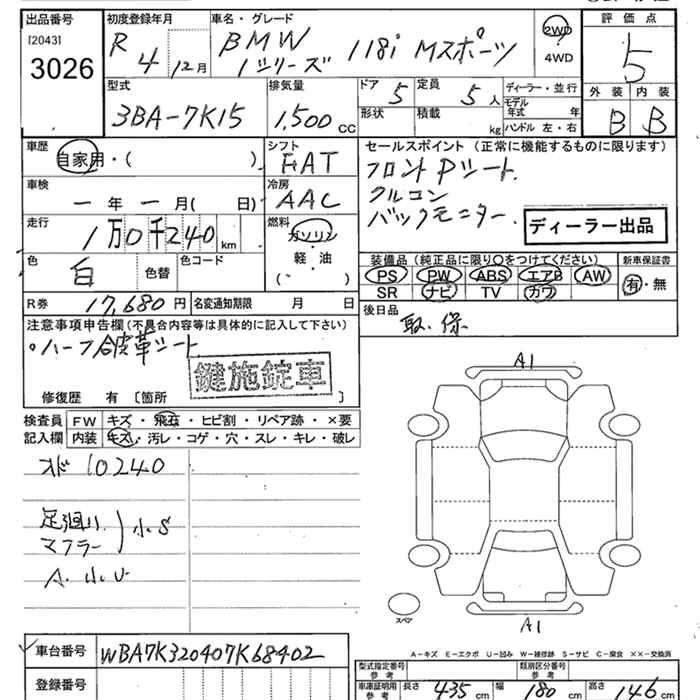 出品番号 初度登録年月 車名・グレード 評価点
[2043] R 4 12月 BMW 118i Mスポーツ 2WD 5
3026 1シリーズ 4WD
型式 排気量 ドア 5 定員 5人 ディーラー・並行 外装 内装
3BA-7K15 1,500 CC 形状 積載 kg モデル年式 年 B B
ハンドル 左・右
車歴 シフト セールスポイント(正常に機能するものに限ります)
自家用・( ) FAT フロントPシート
車検 冷房 クルコン
ー年ー月( 日) AAC バックモニター
走行 燃料 ディーラー出品
1万0千240km ガソリン
色 色替 色コード 軽・油 装備品(純正品に限り○をつけてください) 新車保証書
白 ( ) PS PW ABS エアB AW 有・無
SR ナビ TV カワ
R券 17,680円 名変通知期限 月 日 後日品
注意事項申告欄(不具合内容等は具体的に記入して下さい) 取.保
・ハーフ合皮革シート
鍵施錠車
修復歴 有〔箇所 〕
検査員 FW キズ・飛石・ヒビ割・リペア跡・×要
記入欄 内装 キズ・汚レ・コゲ・穴・スレ・キレ・破レ
A1
オド 10240
足廻り
マフラー 小S
A.小.U
スペア
A1
A-キズ E-エクボ U-凹み W-補修跡 S-サビ C-腐食 ××-交換済
車台番号 WBA7K320407K68402
型式指定番号 参考 類別区分番号 参考
登録番号 車庫証明用 参考 長さ 435cm 幅 180cm 高さ 146cm